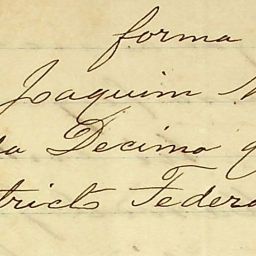 forma
Joaquim
Decima
tricto Federa